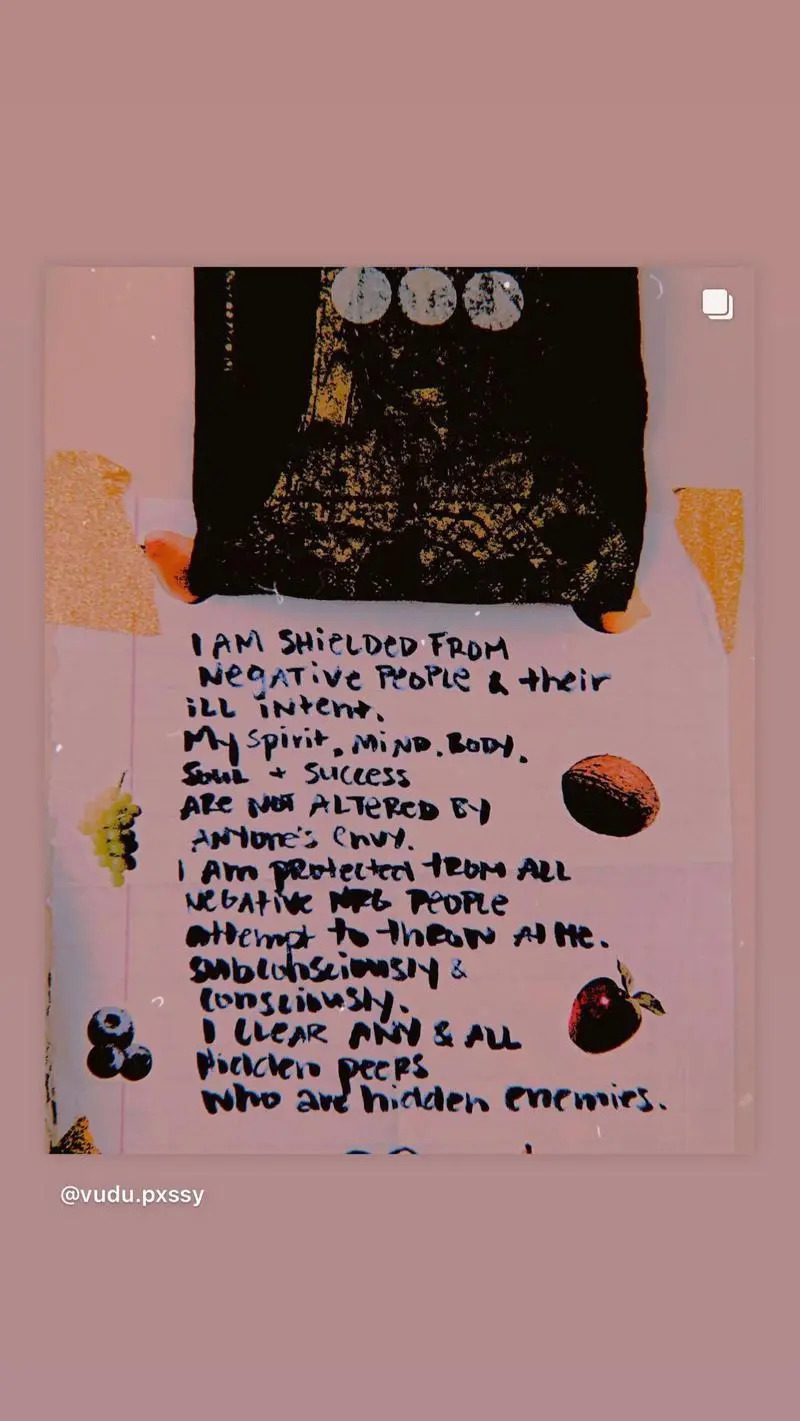 I AM SHiELDED FROM
NegATive PeoPLe & their
iLL iNtent.
My Spirit, MiND, BODY,
SouL + Success
ARe NOT ALTeReD BY
ANYone's envy.
I Am protected from ALL
NeGAtive NRG PeoPLe
attempt to thROW At Me.
subconsciously &
consciously.
I CLEAR ANY & ALL
Hidden peers
who are hidden enemies.
@vudu.pxssy